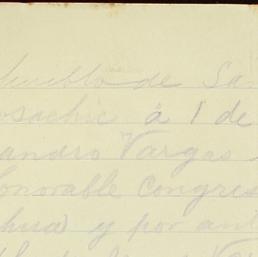 pueblo de San
osachic á 1 de
andro Vargas
onorable Congres
hua) y por ant